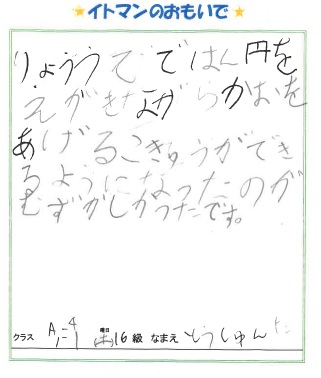 イトマンのおもいで
りょううでではん円を
えがきながらかおを
あげるこきゅうができ
るようになったのが
むずかしかったです。
クラス A 曜日 16級 なまえ とうしゅん